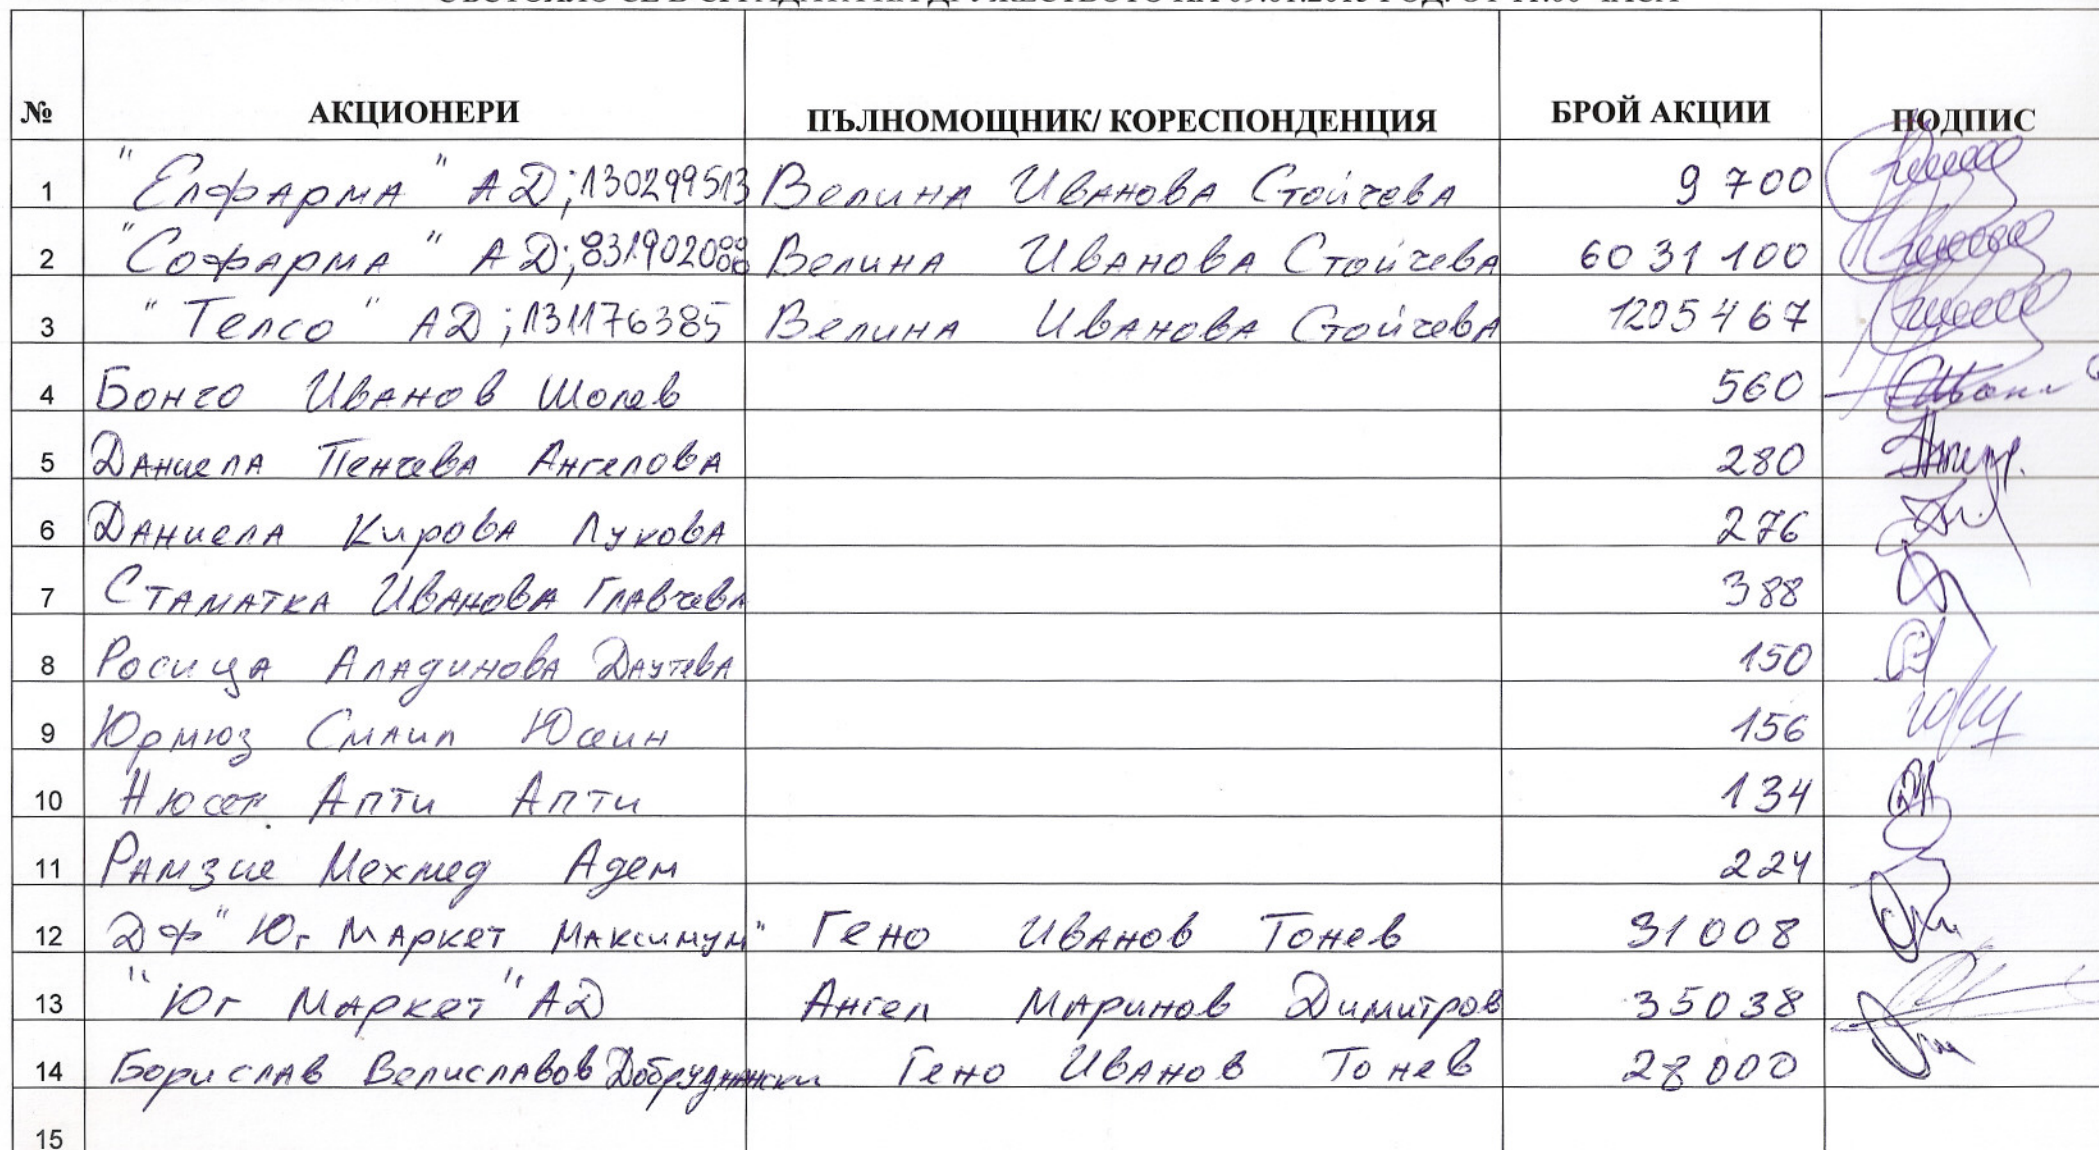 № АКЦИОНЕРИ ПЪЛНОМОЩНИК/ КОРЕСПОНДЕНЦИЯ БРОЙ АКЦИИ ПОДПИС
1 "Елфарма" АД; 130299513 Велина Иванова Стойчева 9 700
2 "Софарма" АД; 831902088 Велина Иванова Стойчева 6031100
3 "Телсо" АД; 131176385 Велина Иванова Стойчева 1205467
4 Бончо Иванов Шолев 560
5 Даниела Пенчева Ангелова 280
6 Даниела Кирова Лукова 276
7 Стаматка Иванова Главчева 388
8 Росица Аладинова Даутева 150
9 Юрмюз Смаил Юсеин 156
10 Нюсет Апти Апти 134
11 Рамзие Мехмед Адем 224
12 ДФ "Юг Маркет Максимум" Гено Иванов Тонев 31008
13 "Юг Маркет" АД Ангел Маринов Димитров 35038
14 Борислав Велиславов Добруджански Гено Иванов Тонев 28000
15